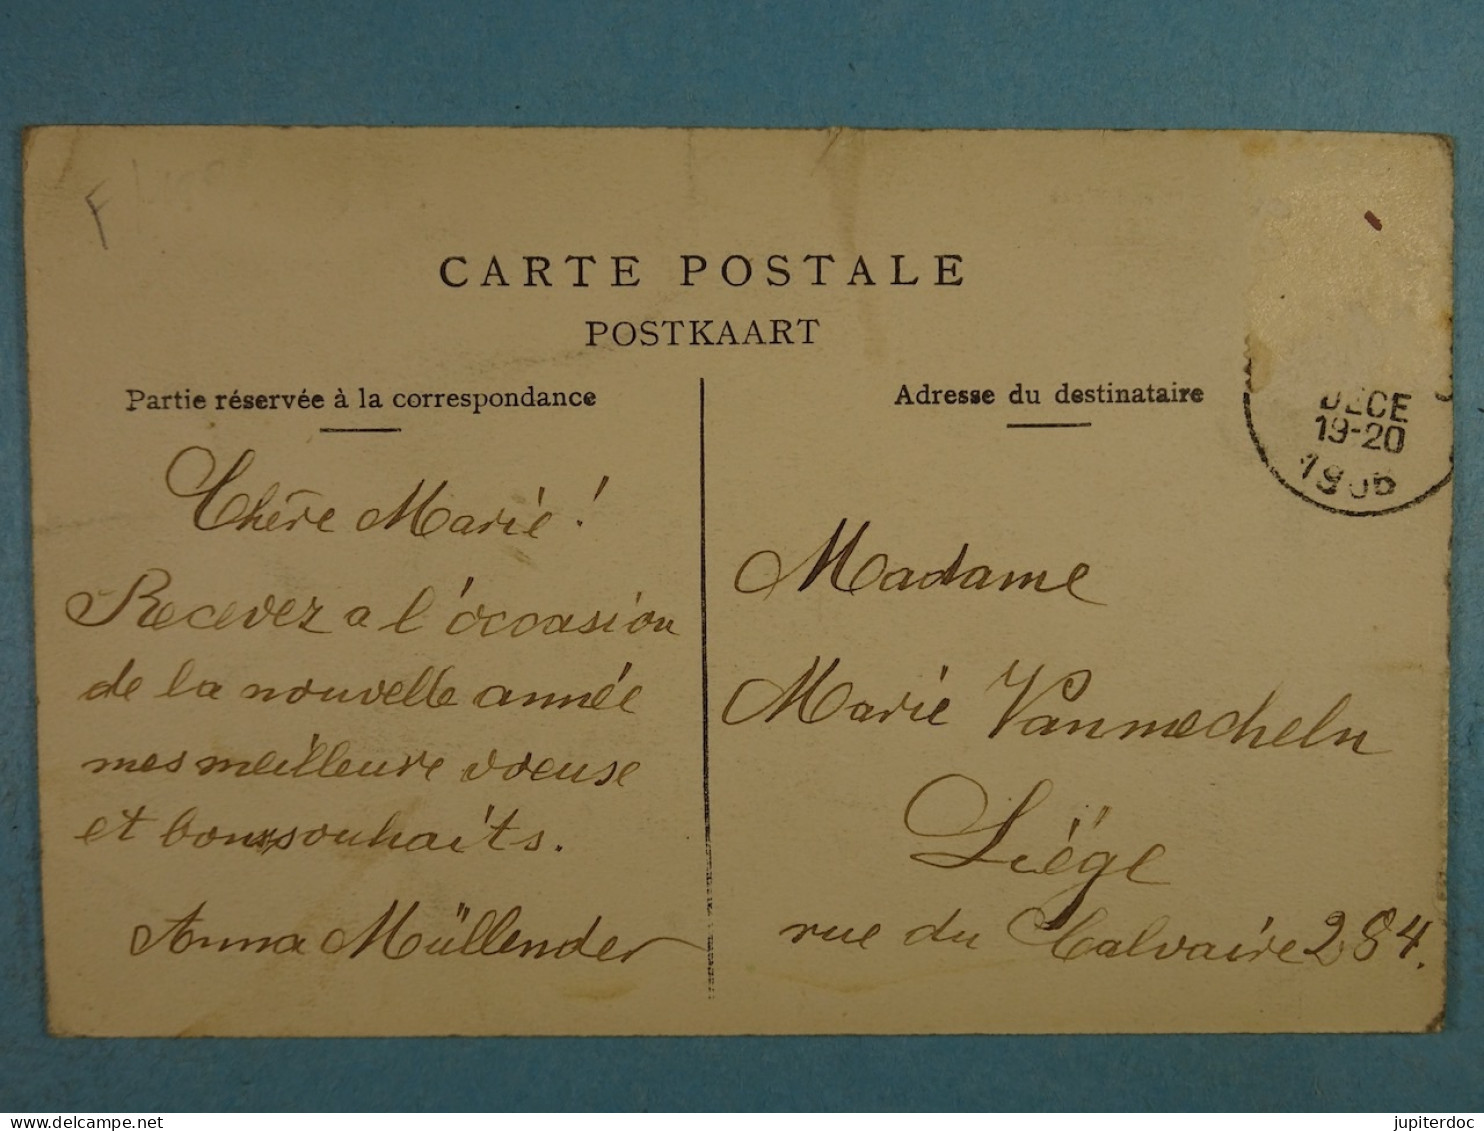 F
CARTE POSTALE
POSTKAART
Partie réservée à la correspondance
Adresse du destinataire
DECE
19-20
1906
Chère Marie!
Recevez a l'occasion
de la nouvelle année
mes meilleure voeuse
et bons souhaits.
Anna Müllender
Madame
Marie Vanmecheln
Liége
rue du Calvaire 284.
jupiterdoc